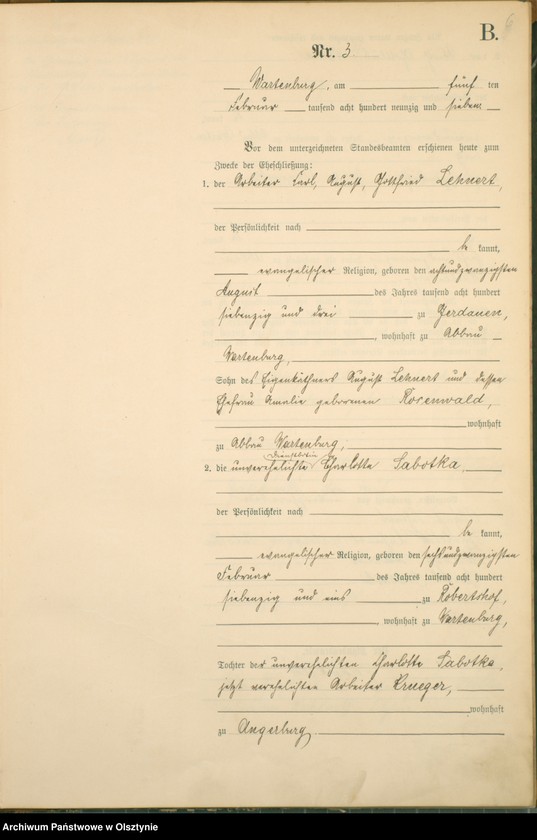 B.
Nr. 3
Wartenburg, am fünf ten
Februar tausend acht hundert neunzig und sieben
Vor dem unterzeichneten Standesbeamten erschienen heute zum
Zwecke der Eheschließung:
1. der Arbeiter Carl, August, Gottfried Lehnert,
der Persönlichkeit nach
be kannt,
evangelischer Religion, geboren den achtundzwanzigsten
August des Jahres tausend acht hundert
siebenzig und drei zu Gerdauen,
, wohnhaft zu Abbau
Wartenburg,
Sohn des Eigenkäthners August Lehnert und dessen
Ehefrau Amalie geborenen Rosenwald,
wohnhaft
zu Abbau Wartenburg,
2. die unverehelichte Charlotte Sabotka
der Persönlichkeit nach
be kannt,
evangelischer Religion, geboren den sechsundzwanzigsten
Februar des Jahres tausend acht hundert
siebenzig und eins zu Robertshof,
, wohnhaft zu Wartenburg,
Tochter der unverehelichten Charlotte Sabotka,
jetzt verehelichten Arbeiter Krueger,
wohnhaft
zu Angerburg
Archiwum Państwowe w Olsztynie